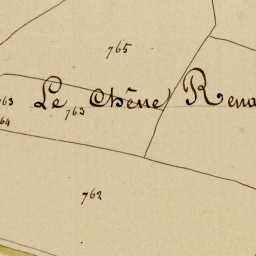 765
Le Chêne Rena
763
763
764
762